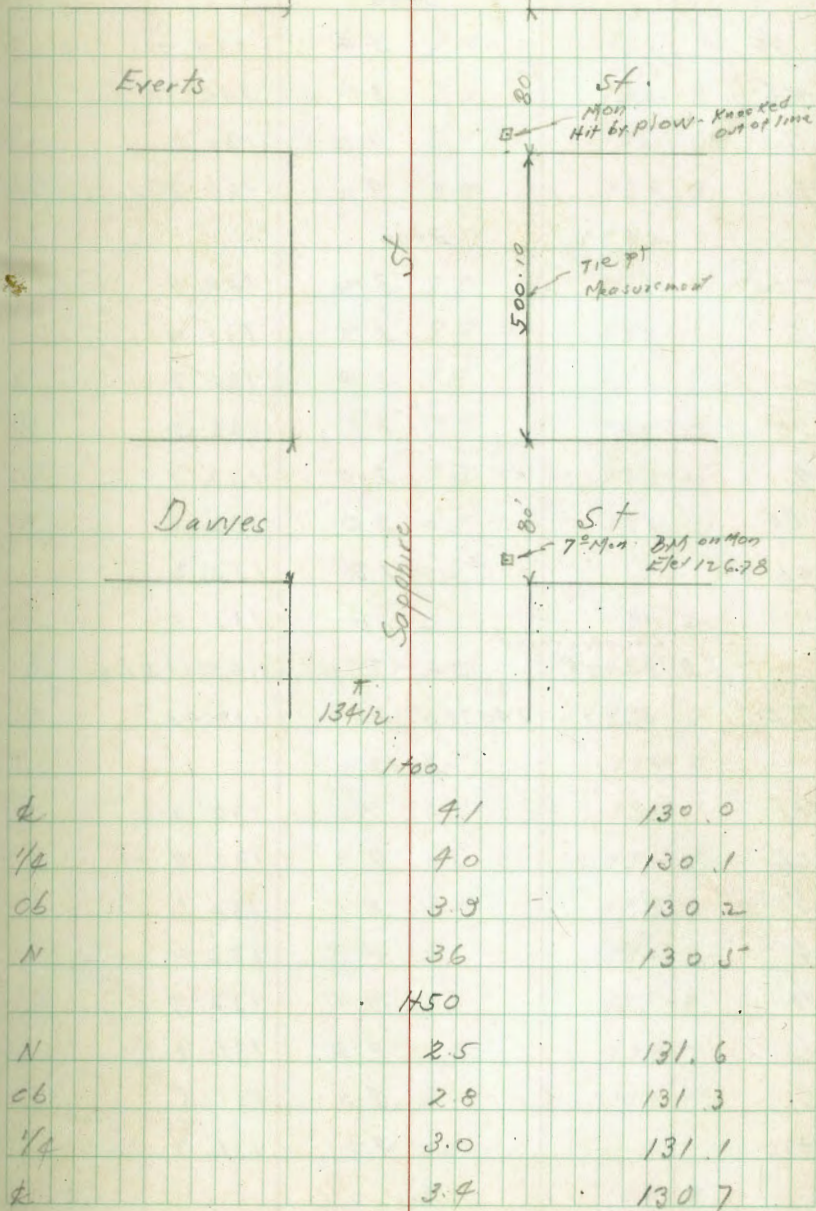 Everts 80 St.
Mon
Hit by plow - Knocked
out of line
St
500.10
Tie pt
Measurement
Davies 80' St
7" Mon. BM on Mon
Elev 126.78
Sapphire
⊼
134.12
1+00
₵ 4.1 130.0
1/4 4 0 130.1
cb 3.9 130 2
N 3 6 130 5
1+50
N 2.5 131.6
cb 2 8 131 3
1/4 3.0 131.1
₵ 3.4 130 7